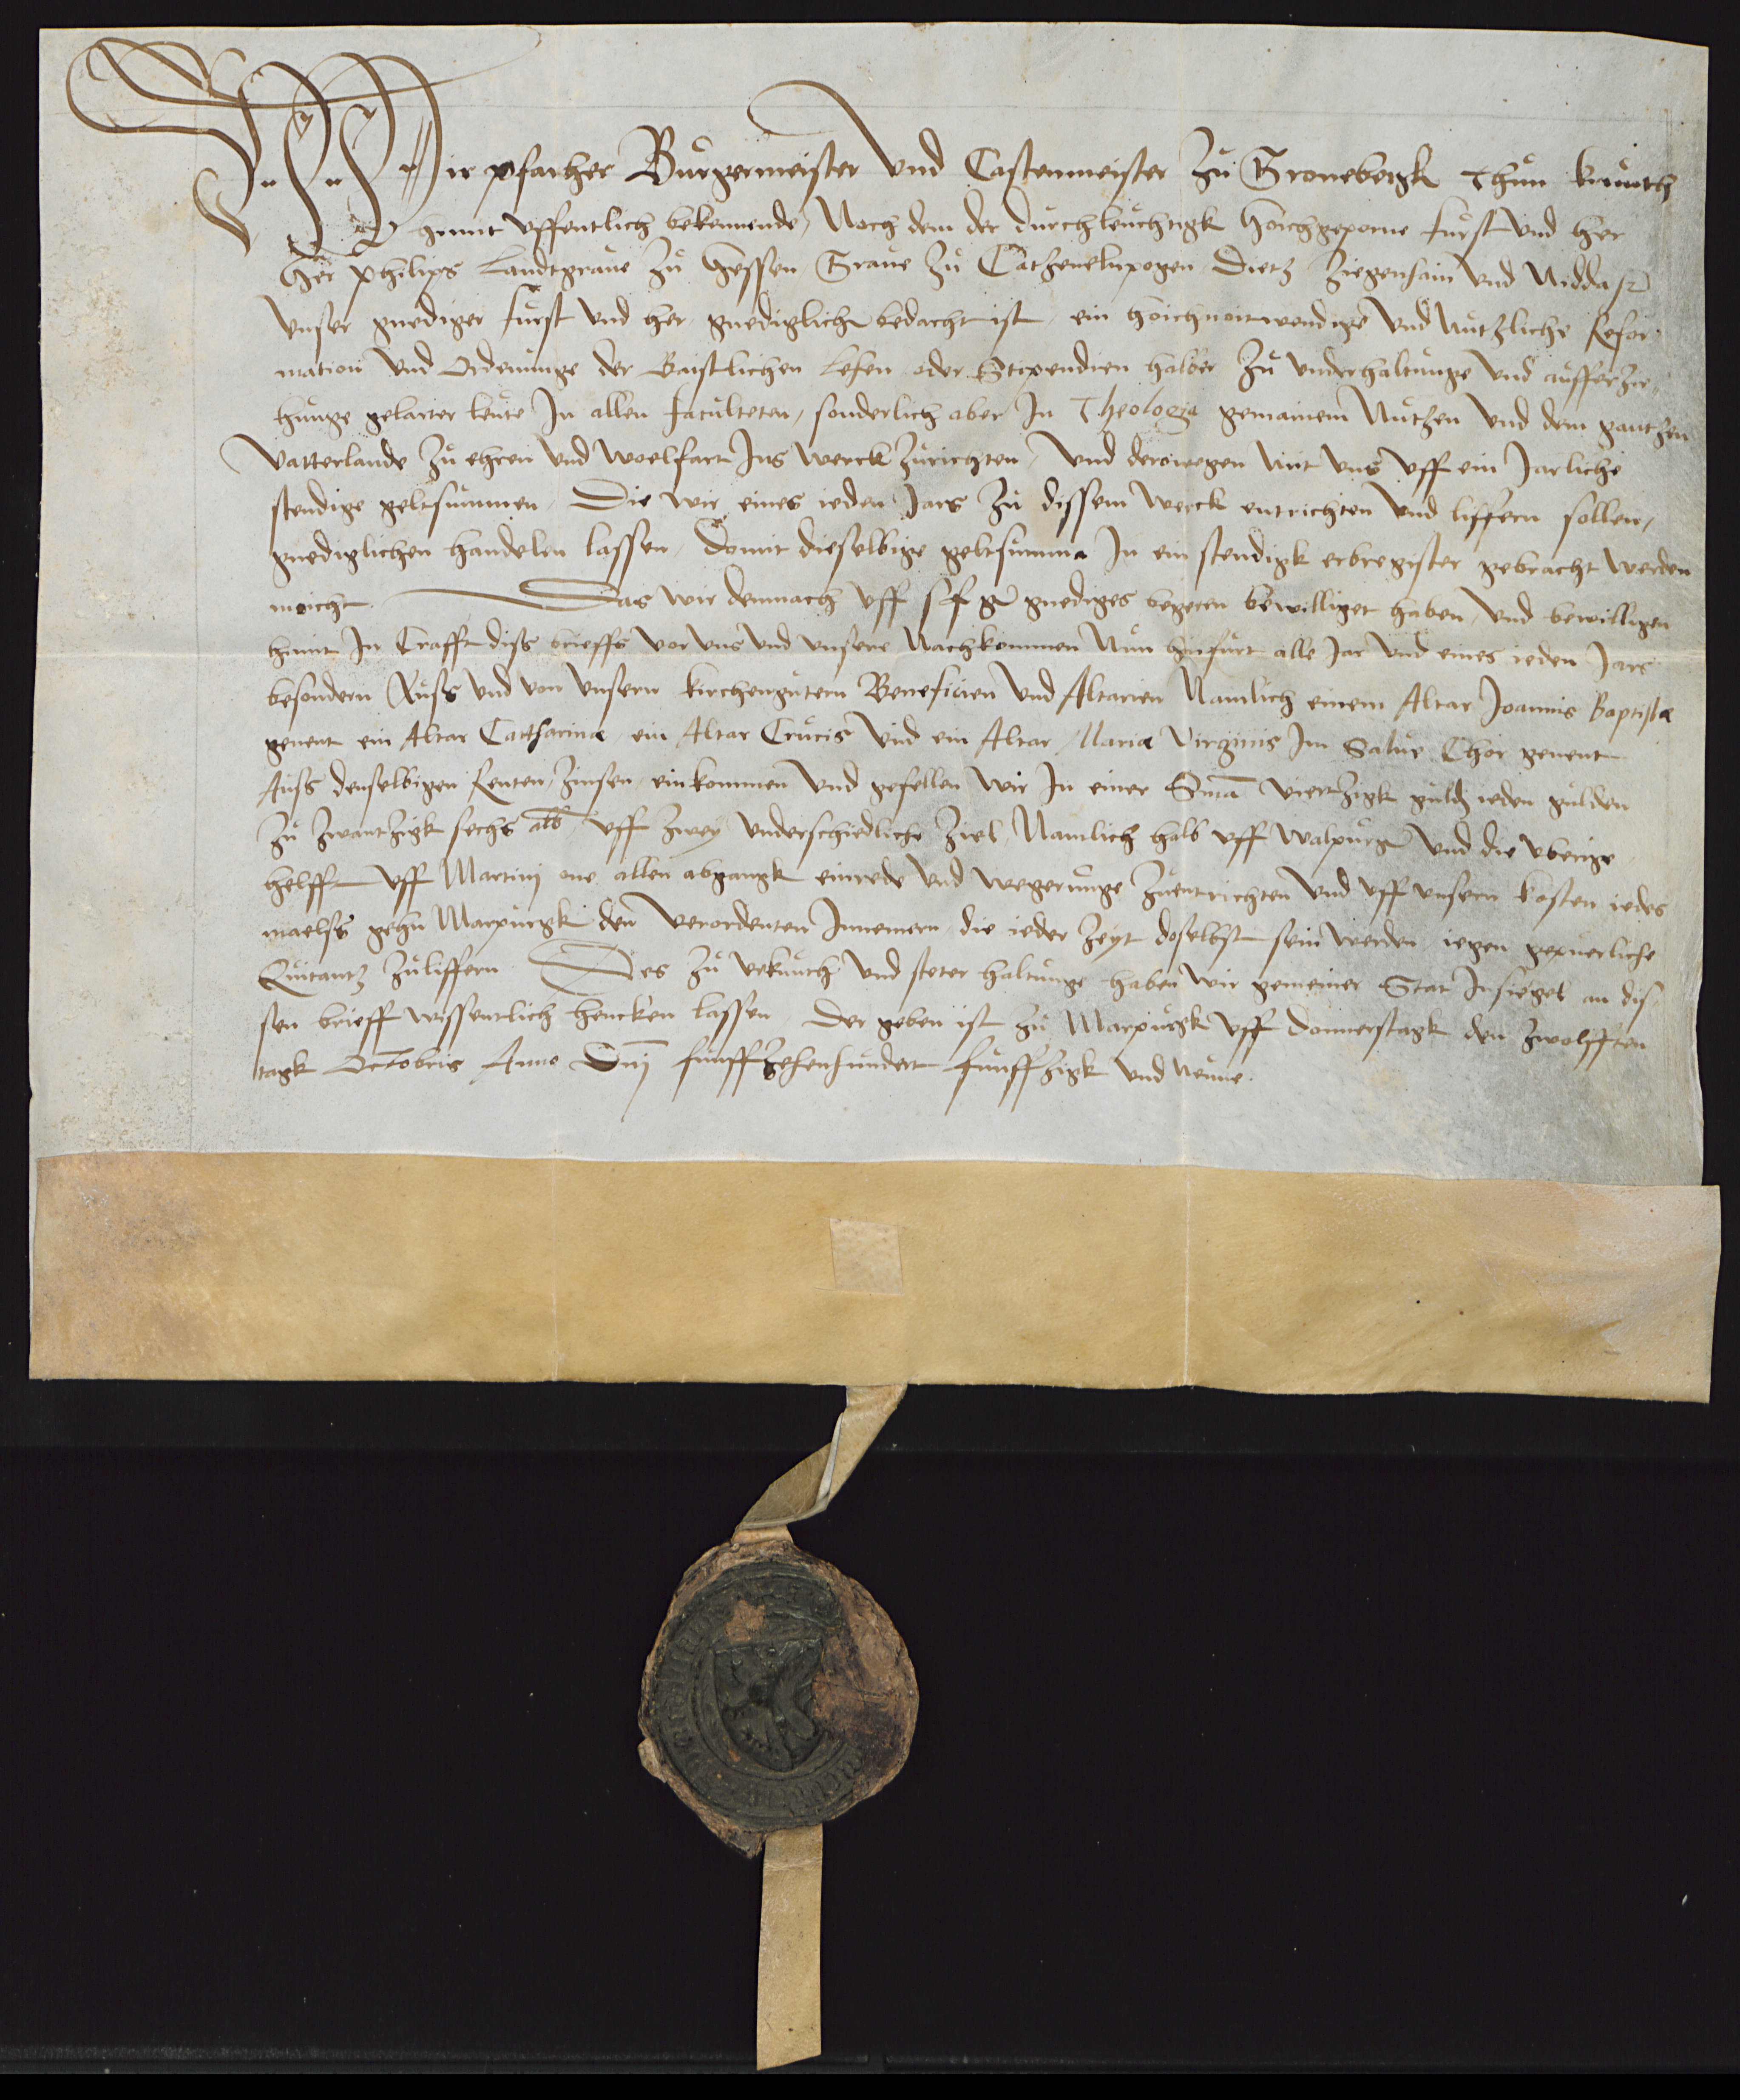 Wir pfarher Burgermeister Vnd Castenmeister Zu Gronebergk Thun kunth
himit vffentlich bekennende, Noch dem der durchleuchtigk hoichgeporne furst vnd her
Her Philips Landtgraue zu Hessen Graue zu Catzenelnpogen Dietz Ziegenhain vnd Nidda
vnser gnediger furst vnd her gnediglich bedacht ist, ein hoichnoitwendige vnd nutzliche Refor
mation vnd Ordenunge der Gaistlichen Lehen oder Stipendien halber zu vnderhaltunge vnd aufferzie
hunge gelarter leute In allen faculteten, sonderlich aber In Theologia gemainem Nutzen vnd dem gantzen
Vatterlande zu ehren vnd woelfart Ins werck zurichten, vnd derowegen mit vns vff ein Jarliche
stendige geltsummen, Die wir eines ieden Jars zu dissem werck entrichten vnd liffern sollen,
gnediglichen handelen lassen, Domit dieselbige geltsumma In ein stendigk erbregister gebracht werden
moicht. Das wir demnach vff s f g gnediges begeren bewilliget haben, vnd bewilligen
himit In Crafft diss brieffs vor vns vnd vnsere Nachkommen Nun hinfurt alle Jar vnd eines ieden Jars
besondern Auss vnd von vnsern kirchengutern Beneficien vnd Altarien Namlich einem Altar Joannis Baptistæ
genent ein Altar Catharinæ, ein Altar Crucis vnd ein Altar Mariæ Virginis Im Salue Chor genent
Auss denselbigen Renten, Zinsen, einkommen vnd gefellen wir In einer Suma viertzigk guld ieden gulden
zu zwantzigk sechs alb vff zwey vnderschiedliche Ziel, Namlich halb vff walpurg vnd die vberige
helfft vff Martinj one allen abgangk einrede vnd wegerunge zuentrichten vnd vff vnsern kosten iedes
maelss gehn Marpurgk den verordenten Innemern, die ieder Zeyt doselbst sein werden, iegen gepuerliche
Quitantz zuliffern. Des zu vrkunth vnd steter haltunge haben wir gemeiner Stat Insiegel an dis
sen brieff wissentlich hencken lassen, Der geben ist zu Marpurgk vff Donnerstagk den zwolfften
tagk Octobris Anno Dnj funffzehenhundert funffzigk vnd neune.